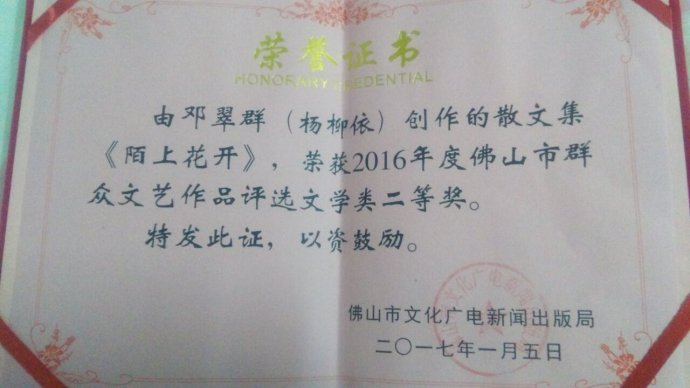 荣誉证书
HONORARY CREDENTIAL
由邓翠群（杨柳依）创作的散文集
《陌上花开》，荣获2016年度佛山市群
众文艺作品评选文学类二等奖。
特发此证，以资鼓励。
佛山市文化广电新闻出版局
二〇一七年一月五日